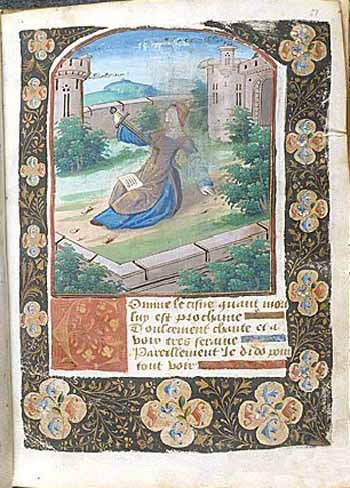 Comme le cisne quant mor
luy est prochaine
Doulcement chante et a
voix tres seraine
Pareillement Je dido pour
tout voir